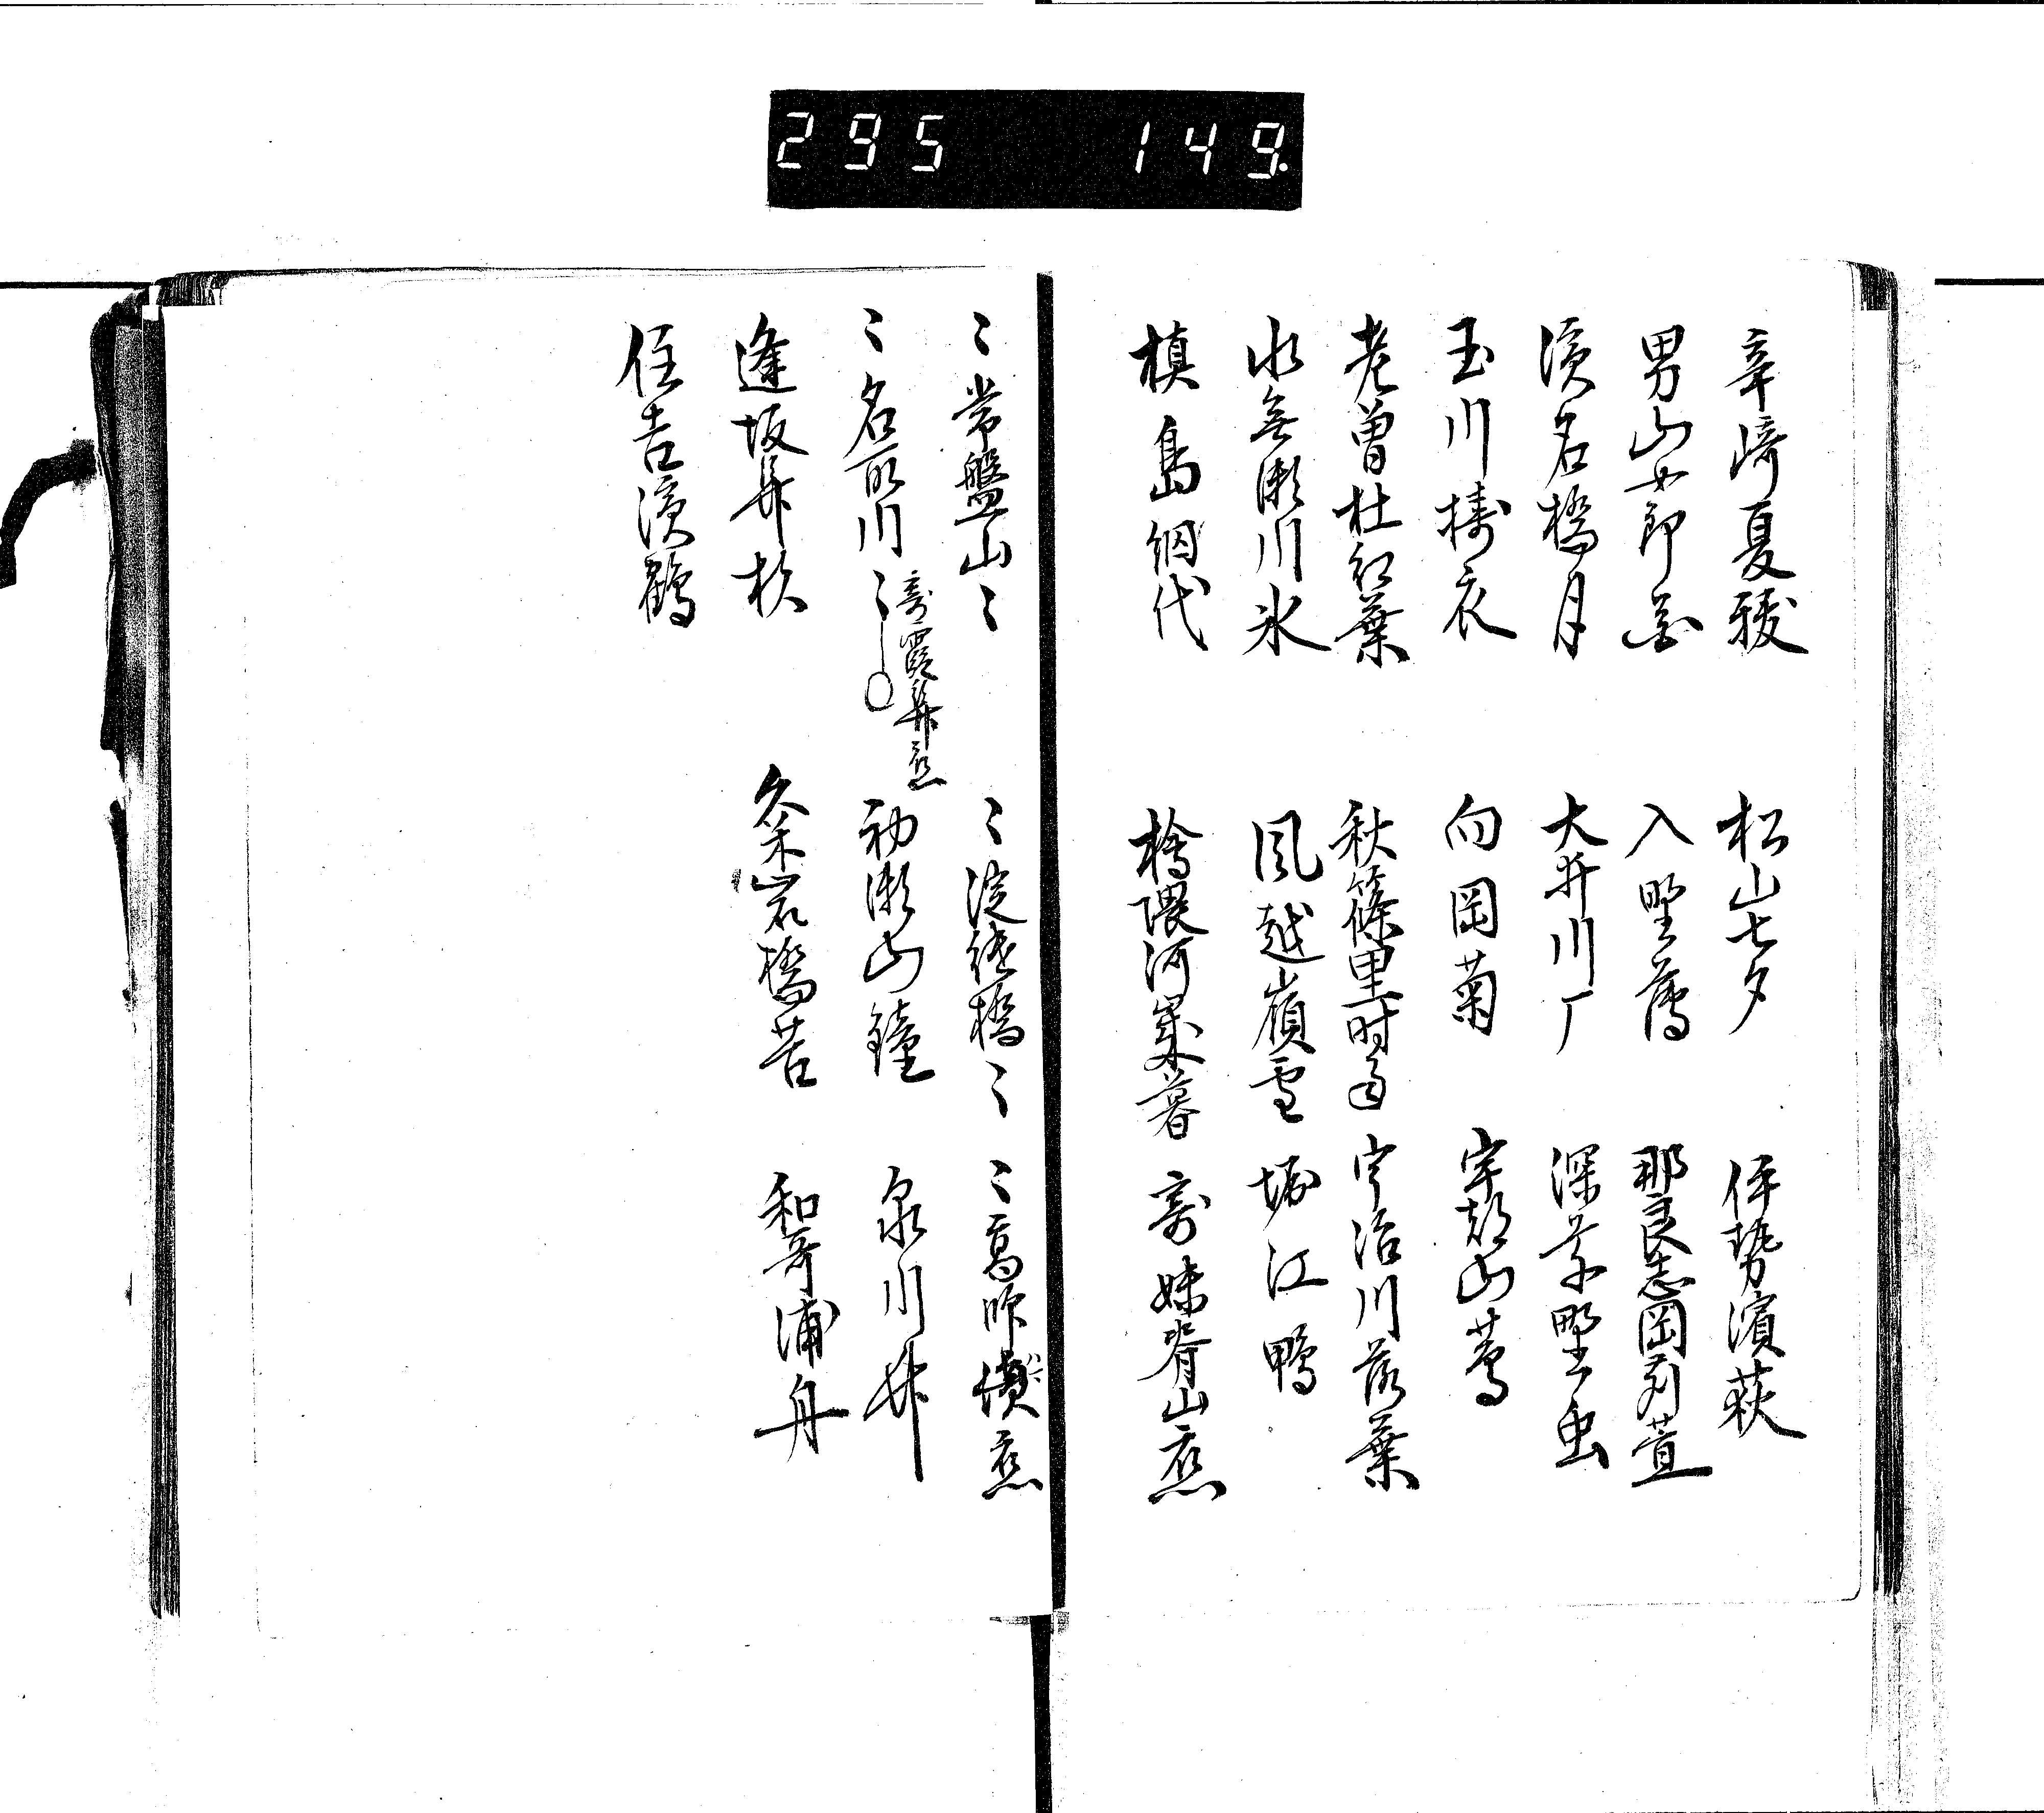 295 149
辛崎夏祓 松山七夕 伊勢濱萩
男山女郎花 入野薄 那良志岡苅萱
濱名橋月 大井川厂 深草野虫
玉川擣衣 向岡菊 宇都山蔦
老曽杜紅葉 秋篠里時雨 宇治川落葉
水無瀬川氷 風越嶺雪 堀江鴨
槙島網代 檜隈河歳暮 寄妹背山恋
〻常盤山〻 〻淀継橋〻 〻高師濱恋
〻名所川〻 初瀬山鐘 泉川
寄霞関恋
逢坂関杉 久米岩橋苔 和哥浦舟
住吉濱鶴